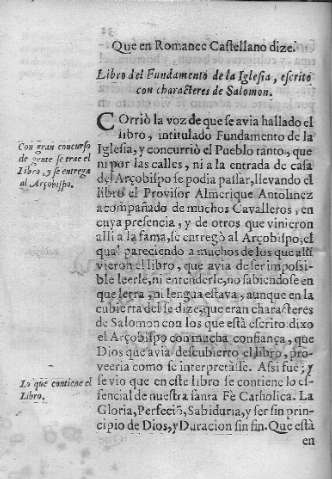 Que en Romance Castellano dize.
Libro del Fundamento de la Iglesia, escrito
con characteres de Salomon.
Con gran concurso
de gente se trae el
Libro, y se entrega
al Arçobispo.
CORriò la voz de que se avia hallado el
libro, intitulado Fundamento de la
Iglesia, y concurriò el Pueblo tanto, que
ni por las calles, ni a la entrada de casa
del Arçobispo se podia passar, llevando el
libro el Provisor Almerique Antolinez
acompañado de muchos Cavalleros, en
cuya presencia, y de otros que vinieron
alli a la fama, se entregò al Arçobispo, el
qual pareciendo a muchos de los que alli
vieron el libro, que avia de ser impossi-
ble leerle, ni entenderle, no sabiendose en
que letra, ni lengua estava, aunque en la
cubierta del se dize, que eran characteres
de Salomon con los que està escrito: dixo
el Arçobispo con mucha confiança, que
Dios que avia descubierto el libro, pro-
veeria como se interpretasse. Assi fue; y
se vio que en este libro se contiene lo es-
sencial de nuestra santa Fè Catholica. La
Gloria, Perfeciõ, Sabiduria, y ser sin prin-
cipio de Dios, y Duracion sin fin. Que està
Lo que contiene el
Libro.
en